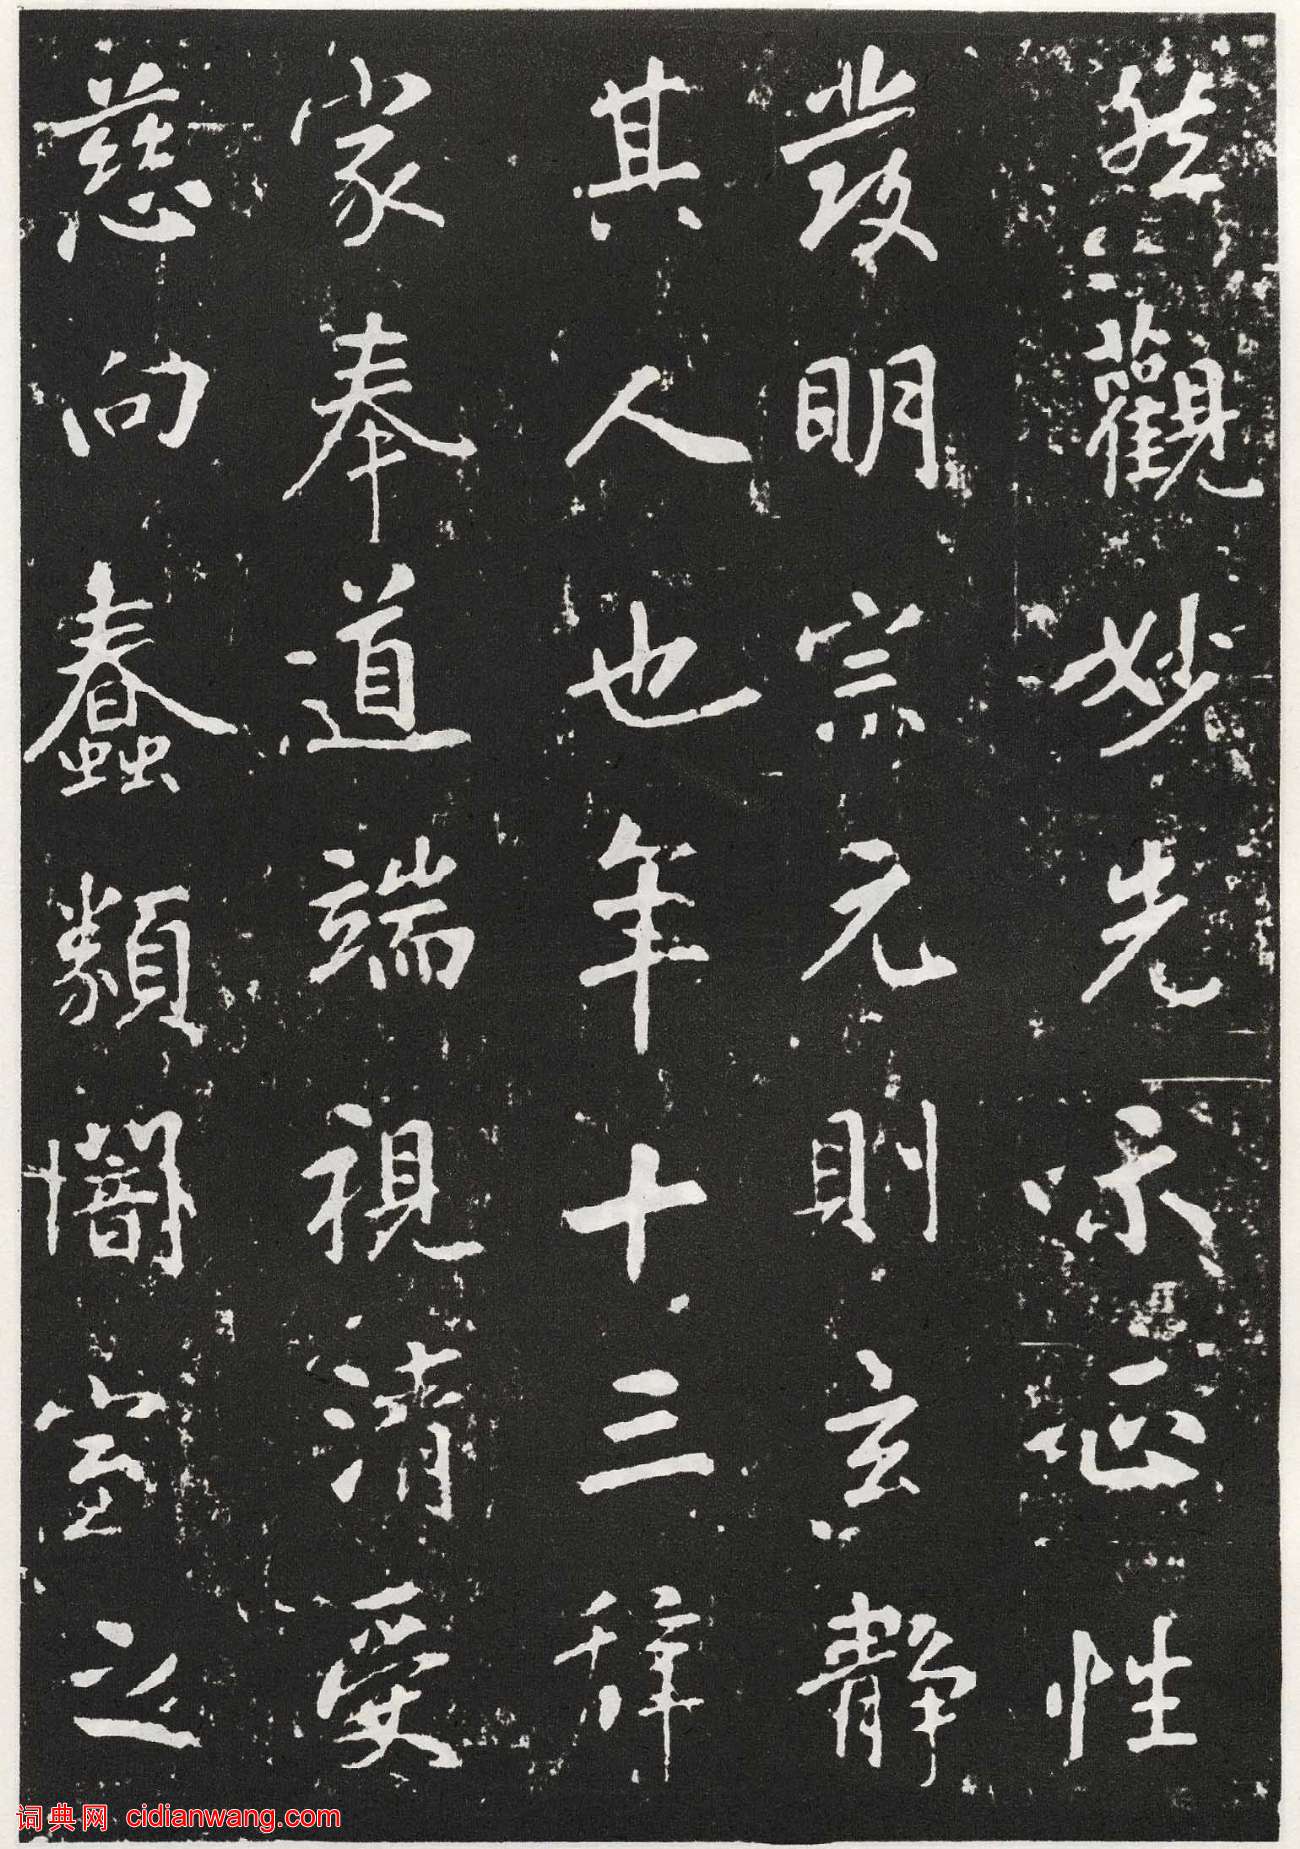 然觀妙先示正性
發明宗元則玄靜
其人也年十三辞
家奉道端視清受
慈向蠢類闇室之
词典网 cidianwang.com